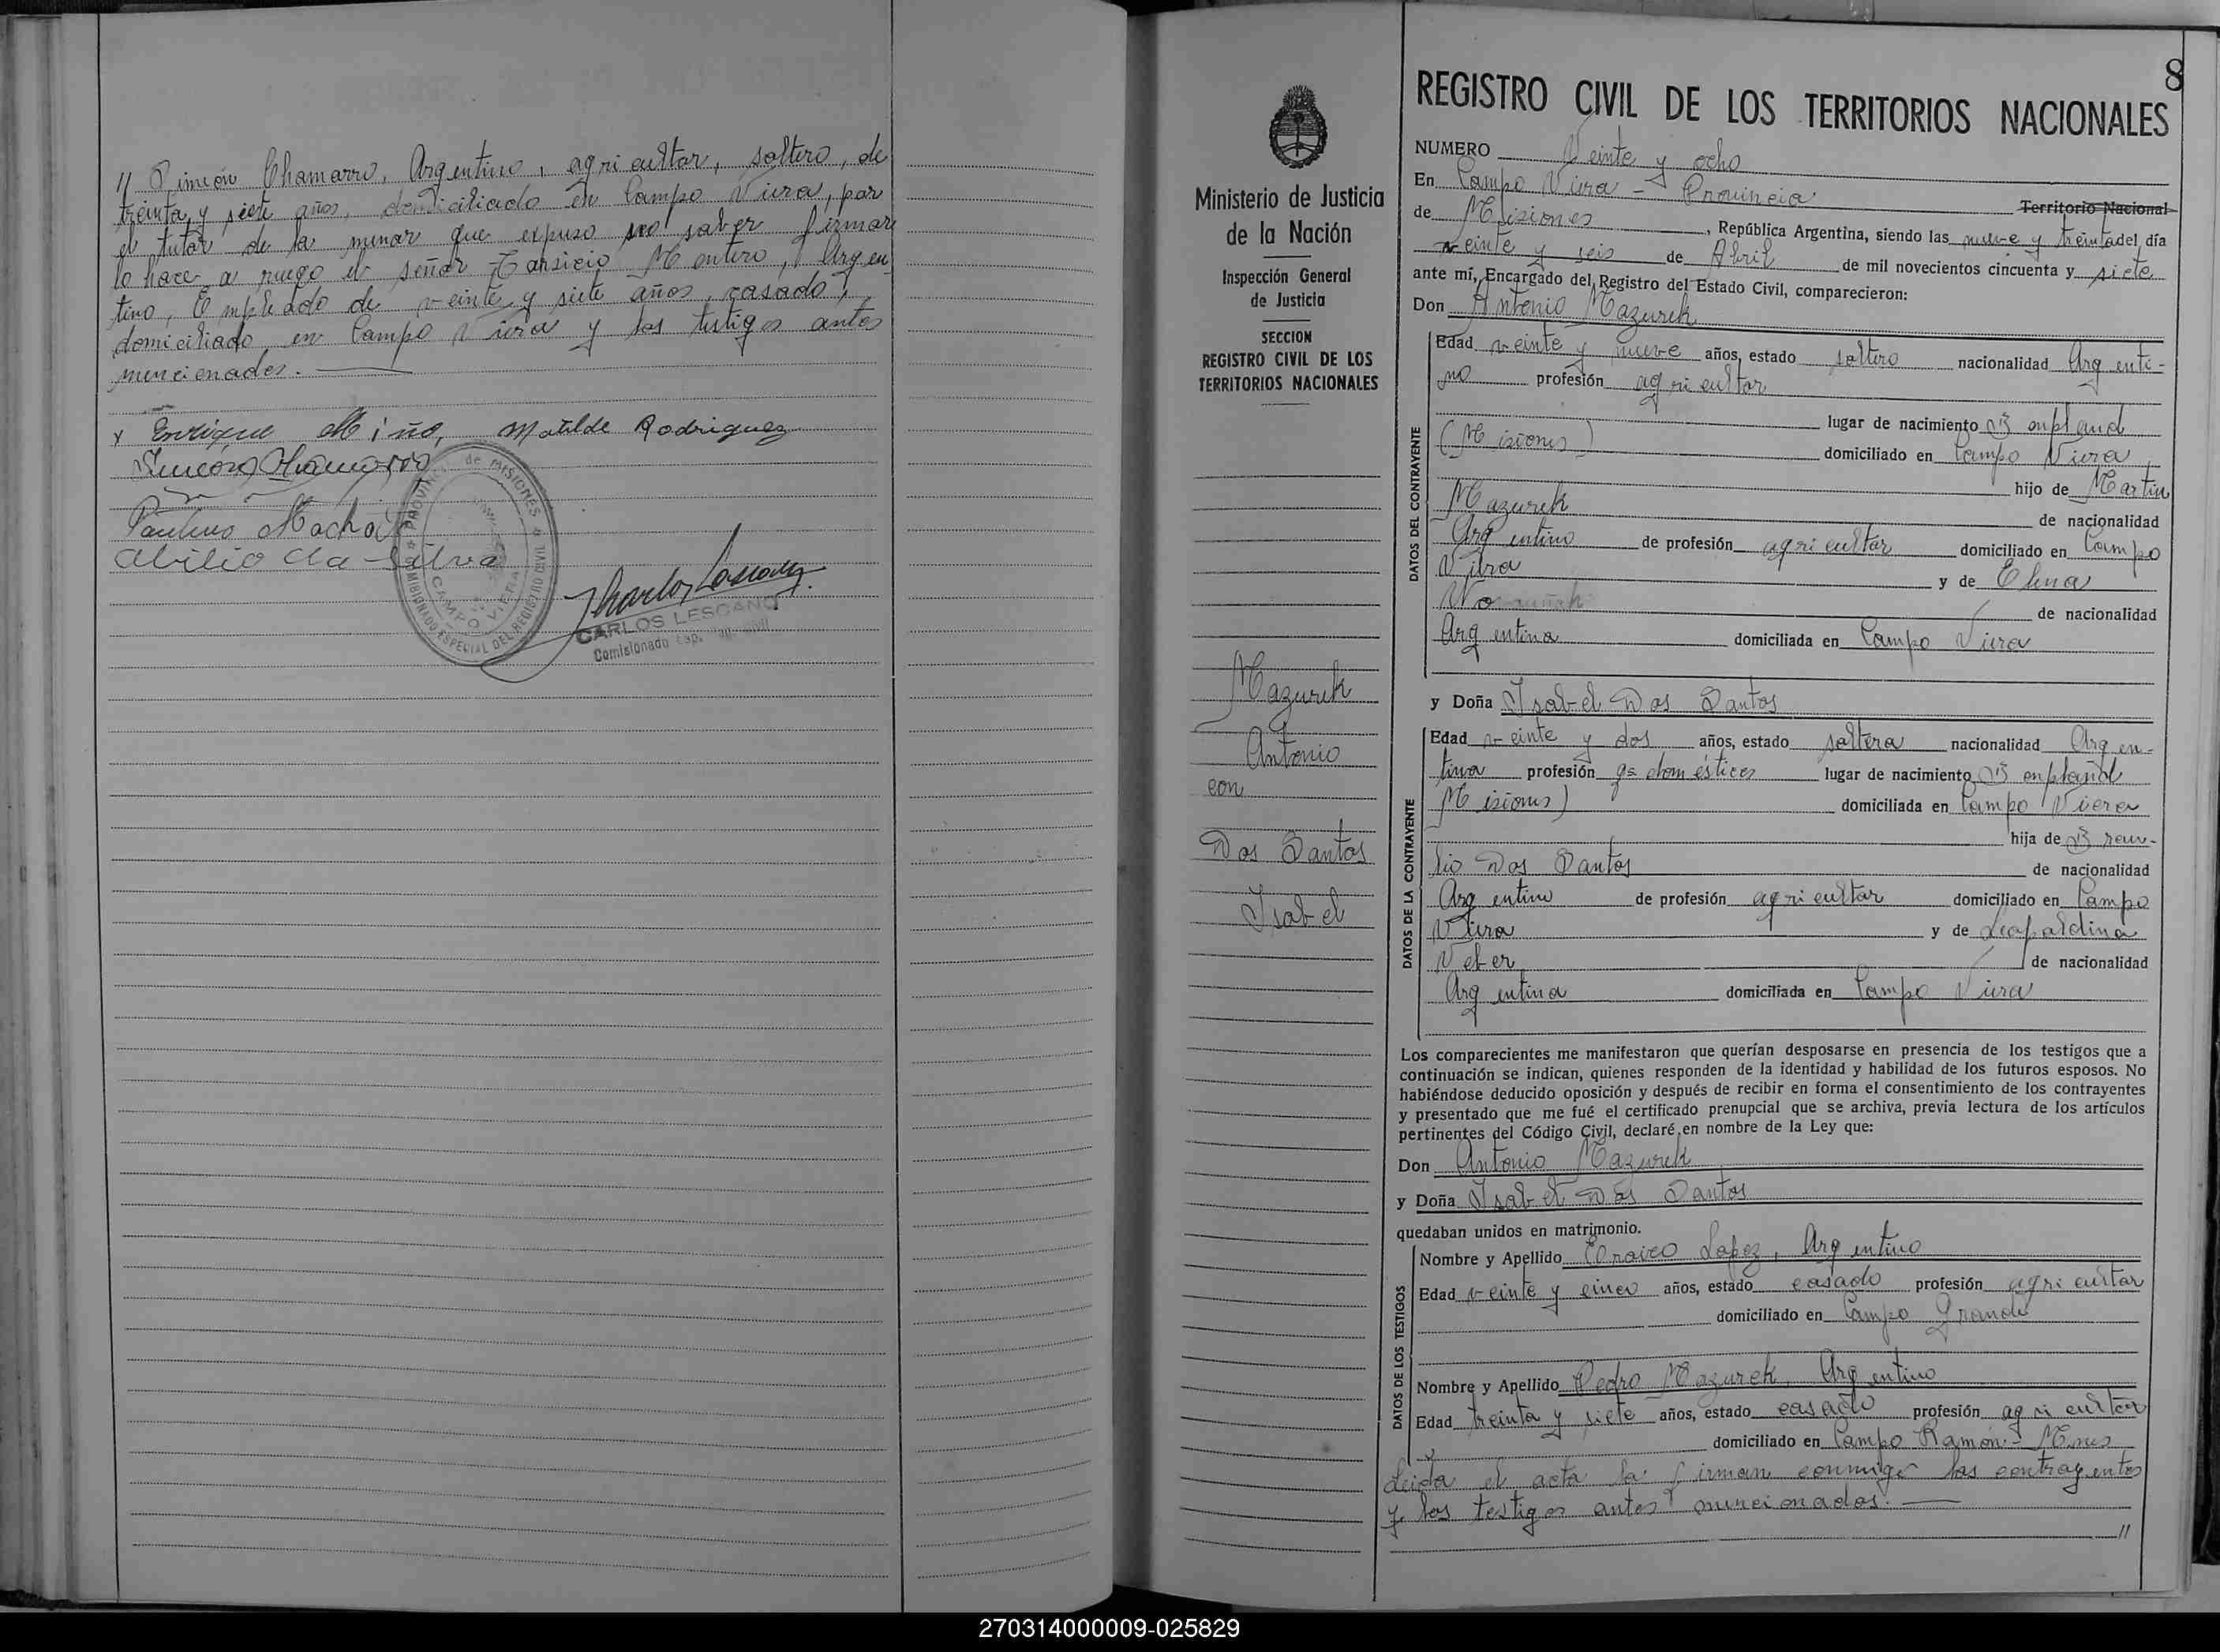 // Simeón Chamarro, Argentino, agricultor, soltero, de
treinta y siete años, domiciliado en Campo Viera, por
el tutor de la menor que expuso no saber firmar
lo hace a ruego el señor Tarsicio Montero, Argen
tino, Empleado de veinte y siete años, casado,
domiciliado en Campo Viera y los testigos antes
mencionados.
x Enrique Miño, Matilde Rodriguez
Simeón Chamarro
Paulino Macha
Abilio da Silva
PROVINCIA de MISIONES
COMISIONADO ESPECIAL DEL REGISTRO CIVIL
CAMPO VIERA
Carlos Lescano
CARLOS LESCANO
Comisionado Esp.
8
REGISTRO CIVIL DE LOS TERRITORIOS NACIONALES
Ministerio de Justicia
de la Nación
Inspección General
de Justicia
SECCION
REGISTRO CIVIL DE LOS
TERRITORIOS NACIONALES
Mazurek
Antonio
con
Dos Santos
Isabel
NUMERO Veinte y ocho
En Campo Viera - Provincia Territorio Nacional
de Misiones, República Argentina, siendo las nueve y treinta del día
veinte y seis de Abril de mil novecientos cincuenta y siete
ante mí, Encargado del Registro del Estado Civil, comparecieron:
Don Antonio Mazurek
DATOS DEL CONTRAYENTE
Edad veinte y nueve años, estado soltero nacionalidad Argenti-
no profesión agricultor
lugar de nacimiento Bonpland
(Misiones) domiciliado en Campo Viera
hijo de Martin
Mazurek de nacionalidad
Argentino de profesión agricultor domiciliado en Campo
Viera y de Elena
de nacionalidad
Argentina domiciliada en Campo Viera
y Doña Isabel Dos Santos
DATOS DE LA CONTRAYENTE
Edad veinte y dos años, estado soltera nacionalidad Argen-
tina profesión qs. domésticos lugar de nacimiento Bonpland
Misiones) domiciliada en Campo Viera
hija de Brau-
lio Dos Santos de nacionalidad
Argentino de profesión agricultor domiciliado en Campo
Viera y de Leopoldina
Veber de nacionalidad
Argentina domiciliada en Campo Viera
Los comparecientes me manifestaron que querían desposarse en presencia de los testigos que a
continuación se indican, quienes responden de la identidad y habilidad de los futuros esposos. No
habiéndose deducido oposición y después de recibir en forma el consentimiento de los contrayentes
y presentado que me fué el certificado prenupcial que se archiva, previa lectura de los artículos
pertinentes del Código Civil, declaré en nombre de la Ley que:
Don Antonio Mazurek
y Doña Isabel Dos Santos
quedaban unidos en matrimonio.
DATOS DE LOS TESTIGOS
Nombre y Apellido Lopez, Argentino
Edad veinte y cinco años, estado casado profesión agricultor
domiciliado en Campo Grande
Nombre y Apellido Pedro Mazurek, Argentino
Edad treinta y siete años, estado casado profesión agricultor
domiciliado en Campo Ramón - Mnes
Leida el acta la firman conmigo los contrayentes
y los testigos antes mencionados. //
270314000009-025829